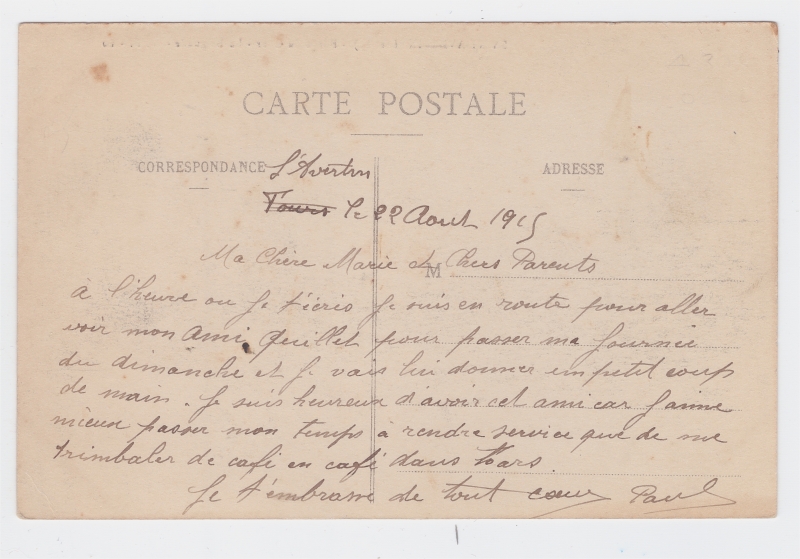 CARTE POSTALE
CORRESPONDANCE
ADRESSE
St Avertin
Tours le 22 Aout 1915
Ma Chère Marie et Chers Parents
M
à l'heure ou Je t'écris Je suis en route pour aller
voir mon Ami Quillet pour passer ma Journée
du dimanche et Je vais lui donner un petit coup
de main. Je suis heureux d'avoir cet ami car J'aime
mieux passer mon temps à rendre service que de me
trimbaler de café en café dans Tours.
Je t'embrasse de tout coeur Paul